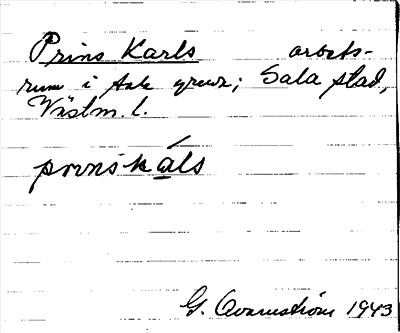 Prins Karls arbets-
rum i Sala gruva; Sala stad,
Västm. l.
prins káls
G. Avarnström 1943